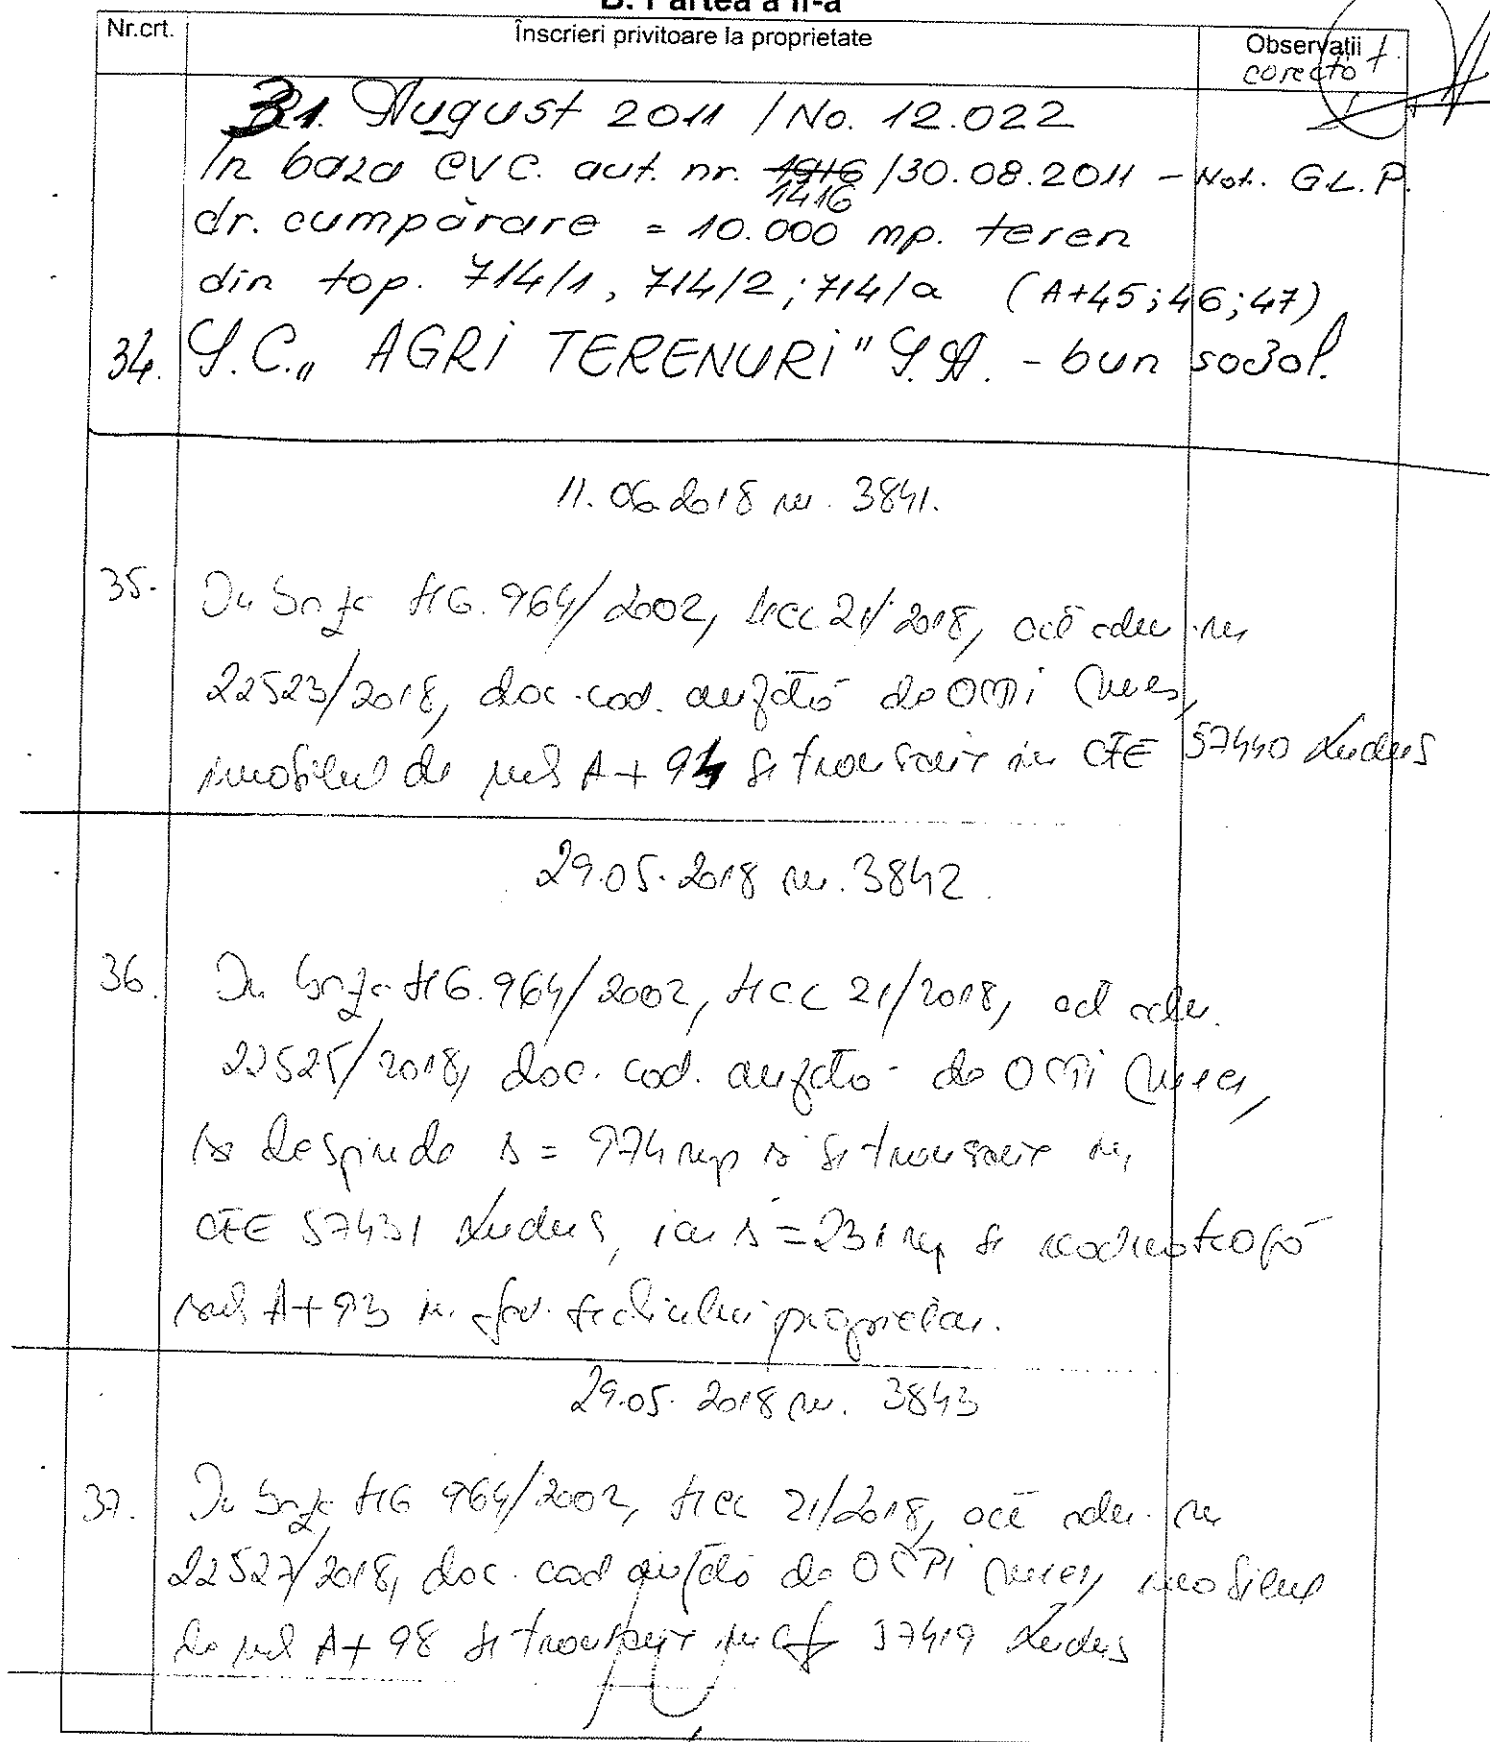 B. Partea a II-a
Nr.crt.
Înscrieri privitoare la proprietate
Observații
corecto
31. August 2011 / No. 12.022
În baza CVC. aut. nr. 1916 /30.08.2011 - Not. GL.P.
1416
dr. cumpărare = 10.000 mp. teren
din top. 714/1, 714/2; 714/a (A+45;46;47)
34. S.C. „AGRI TERENURI" S.A. - bun social.
11.06.2018 nr. 3841.
35. În baza HG. 964/2002, HCL 21/2018, act adev. nr
22523/2018, doc. cad. avizată de OCPI Mureș,
imobilul de sub A+ 94 se transcrie în CFE 57440 Luduș
29.05.2018 nr. 3842.
36. În baza HG. 964/2002, HCL 21/2018, act adev.
22525/2018, doc. cad. avizată de OCPI Mureș,
se desprinde s = 974 mp și se transcrie în
CFE 57431 Luduș, iar s = 231 mp se
sub A+93 în fav. vechiului proprietar.
29.05.2018 nr. 3843
37. În baza HG 964/2002, HCL 21/2018, act adev. nr
22527/2018, doc. cad avizată de OCPI Mureș, imobilul
de sub A+ 98 se transcrie în cf 57419 Luduș